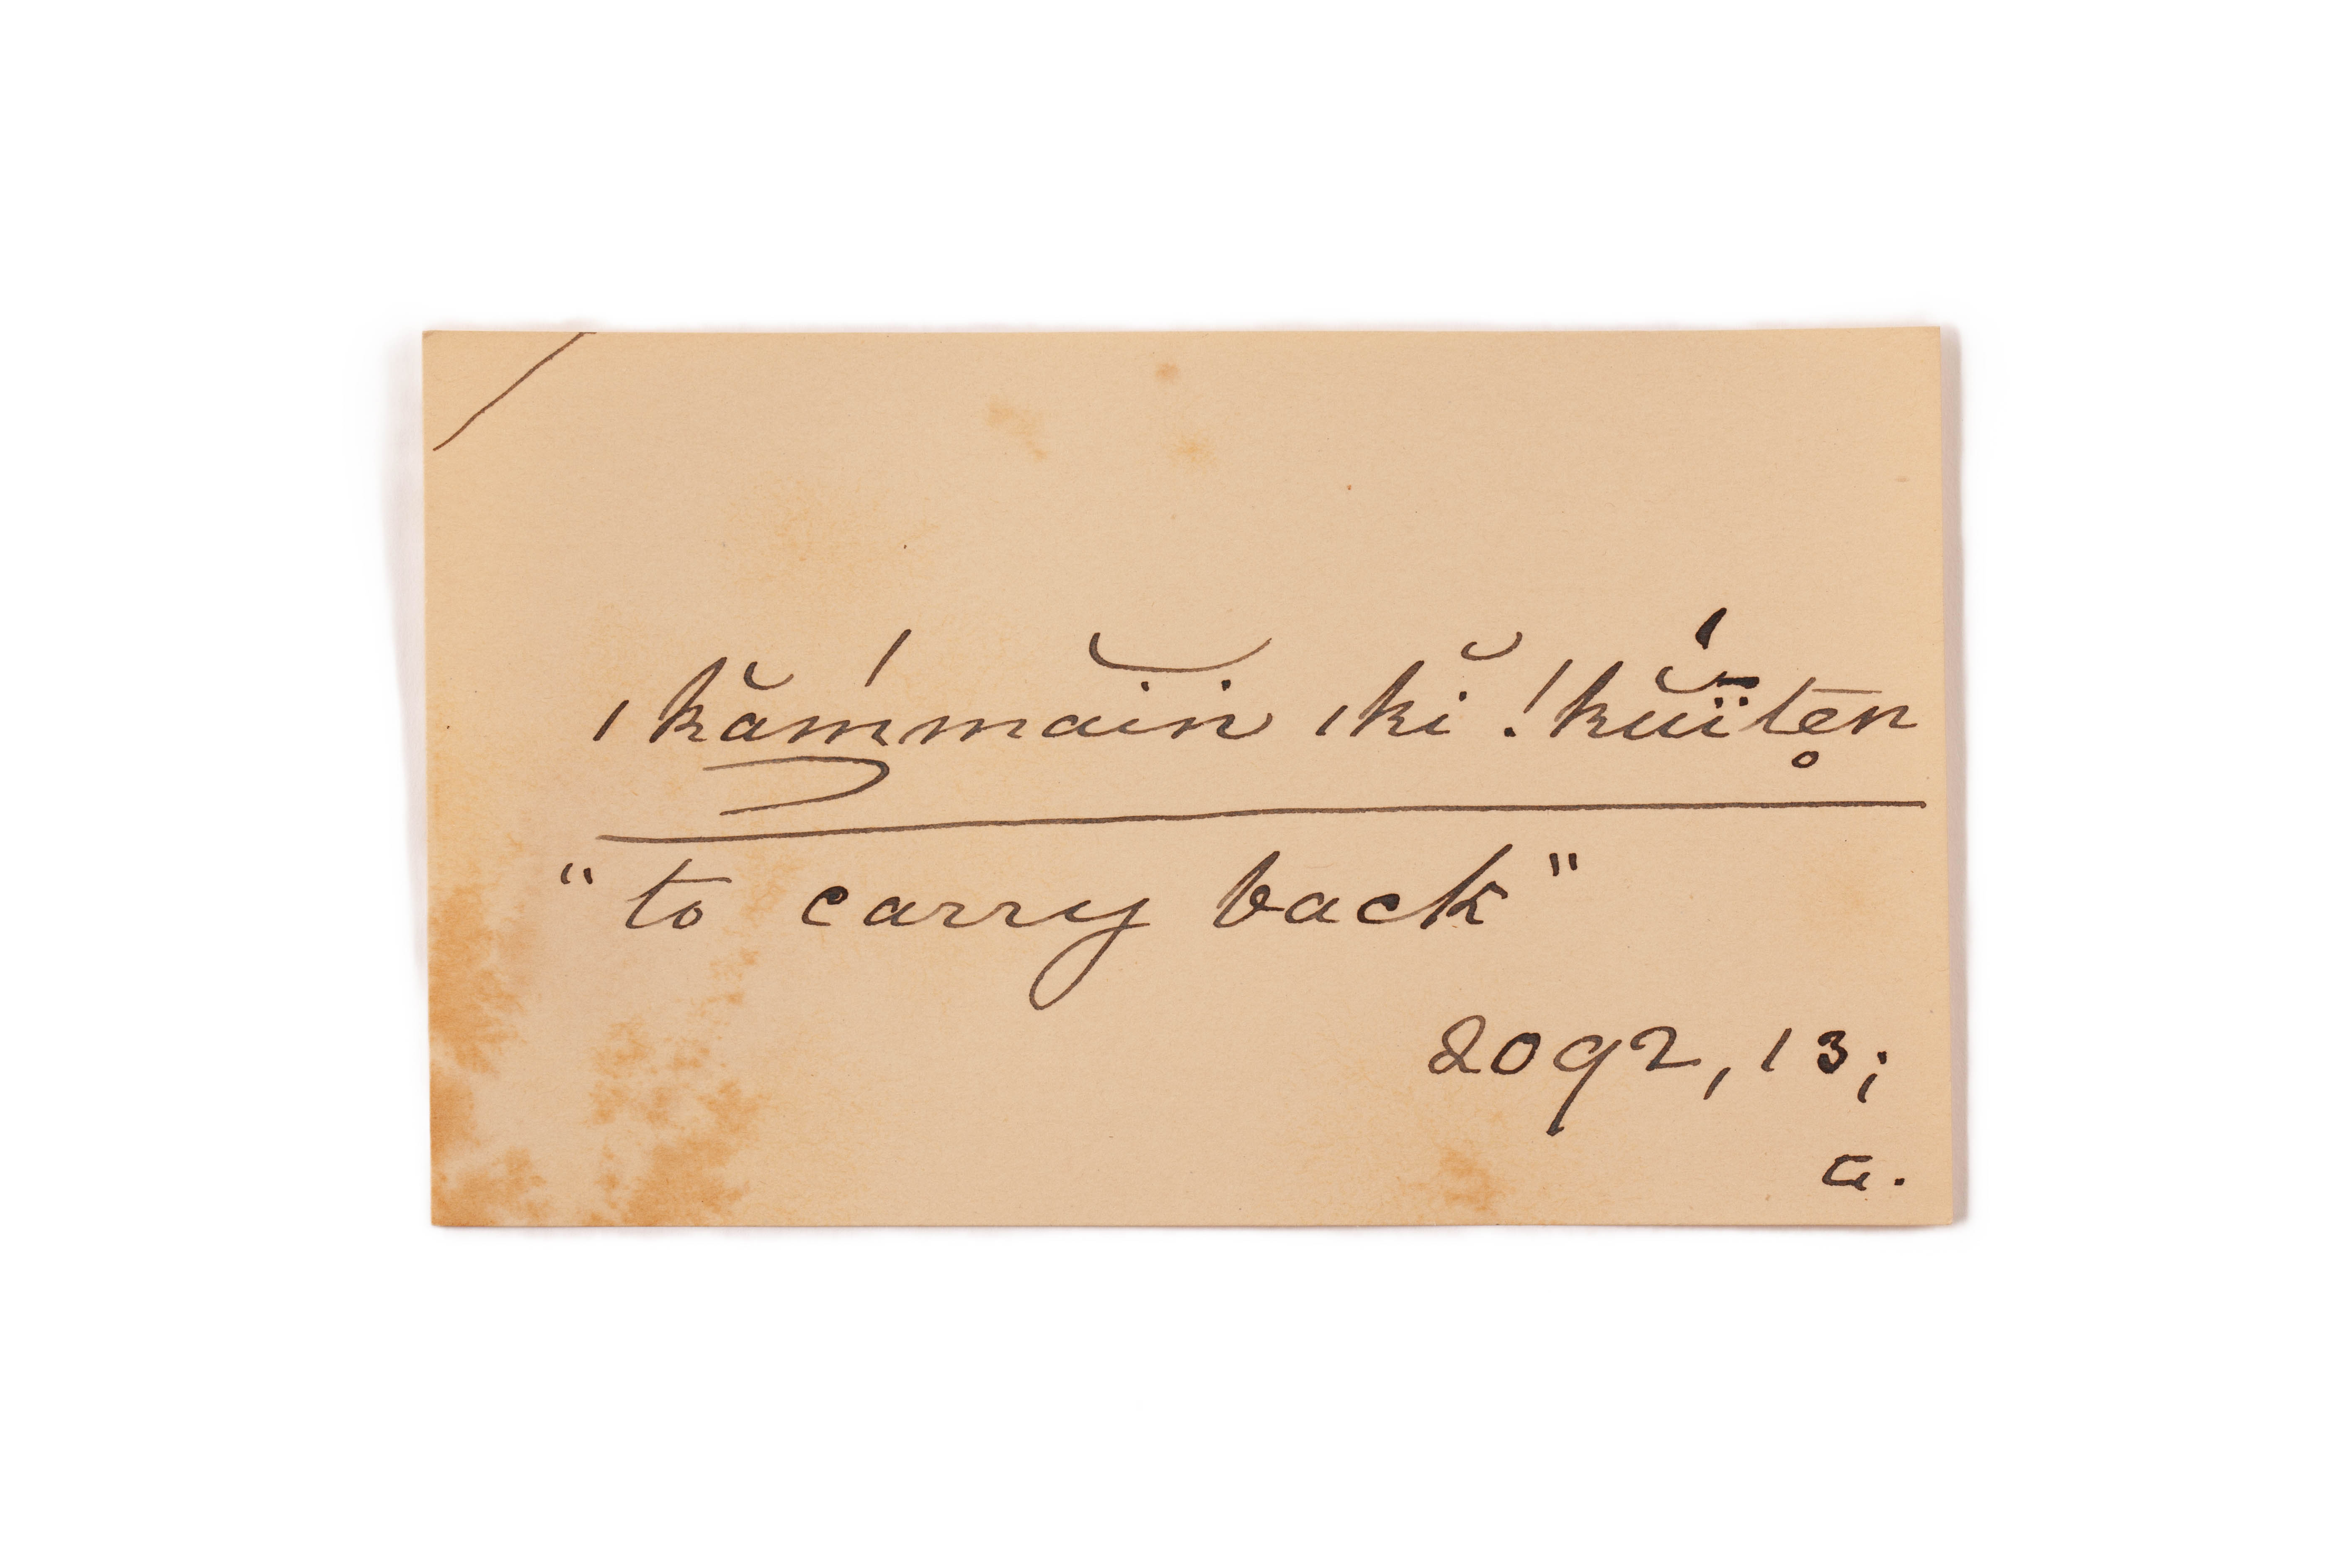 ǀkăḿmăïn ǀkĭ ǃkŭḯte̥n
“to carry back”
2092, 13;
a.